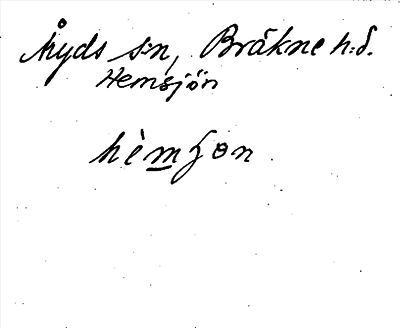 Åryds s:n, Bräkne h:d.
Hemsjön
hèmʃɷn